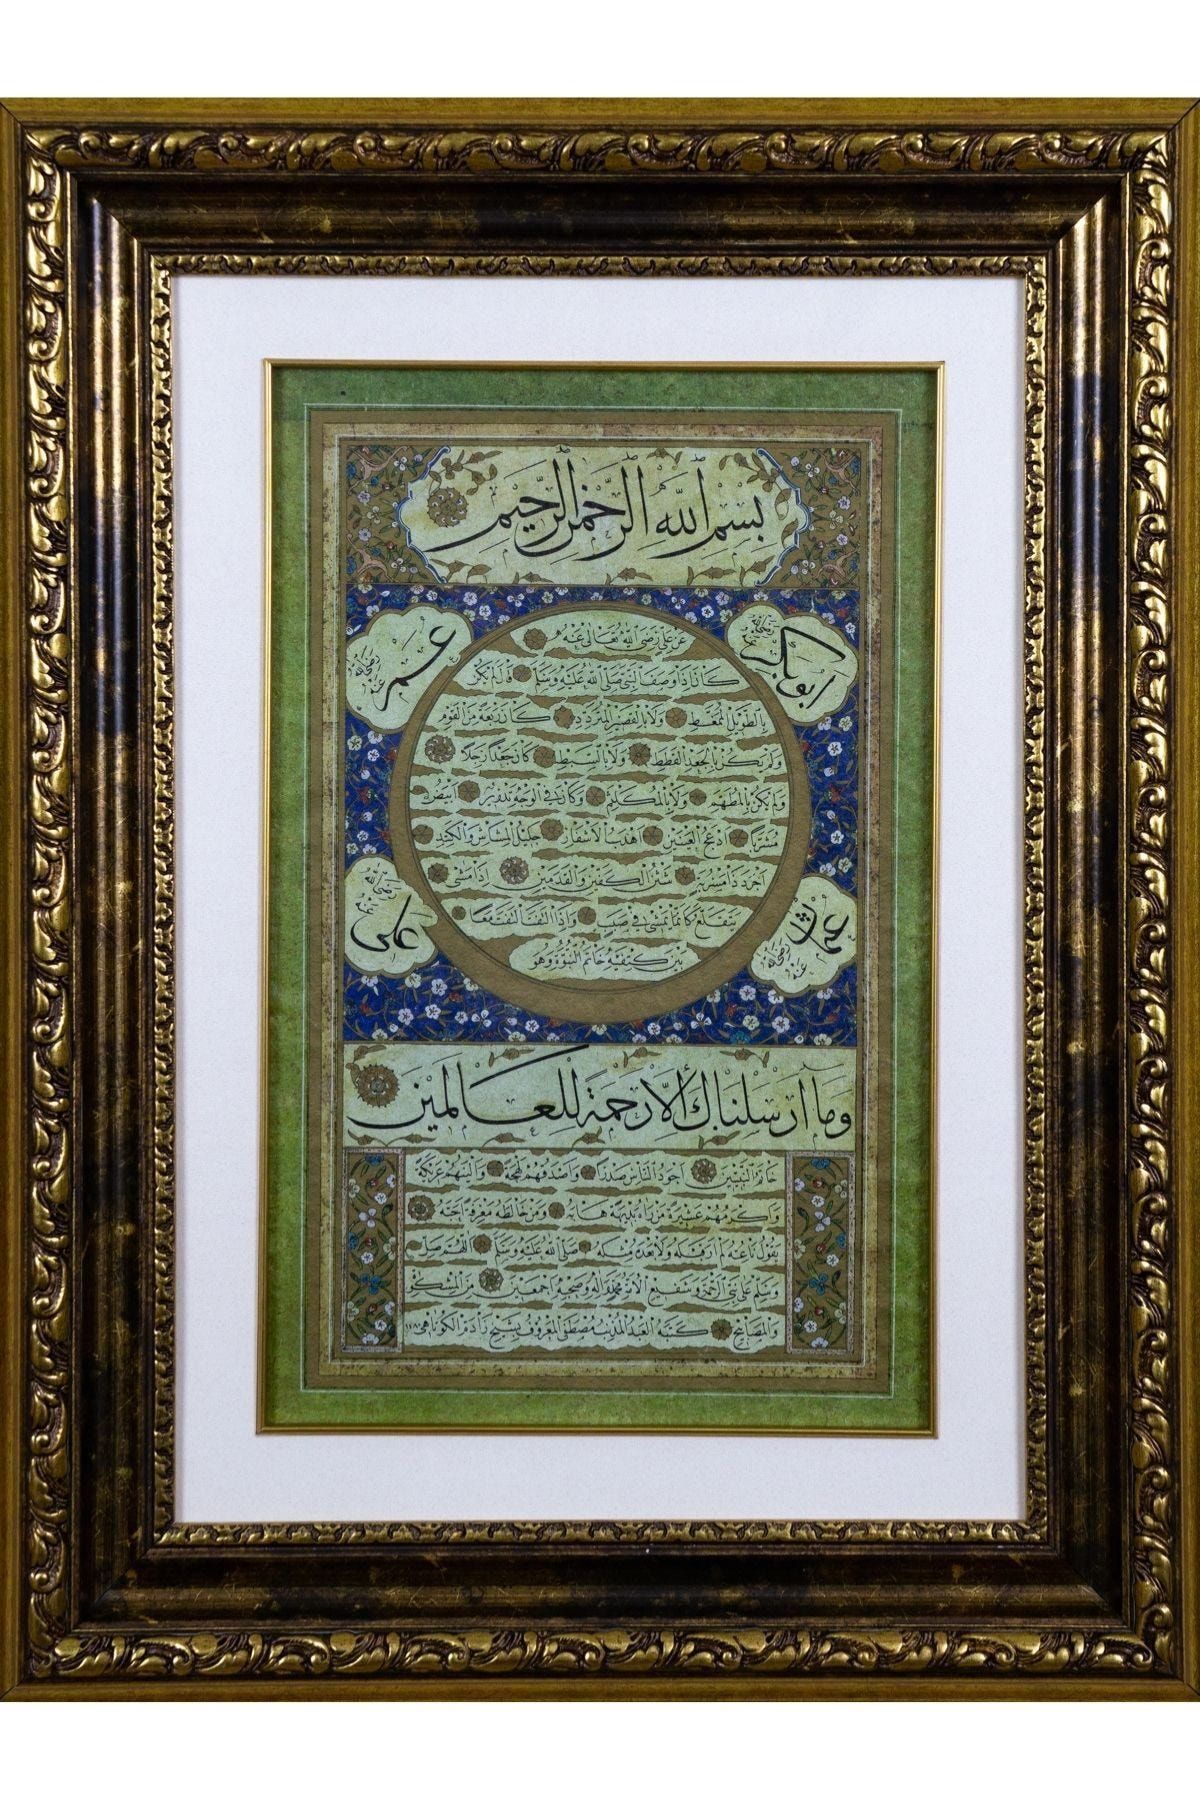 بسم الله الرحمن الرحيم
ابو بكر رضي الله عنه
عمر رضي الله عنه
عن علي رضي الله تعالى عنه
كان اذا وصف النبي صلى الله عليه وسلم قال لم يكن
بالطويل الممغط ولا بالقصير المتردد كان ربعة من القوم
ولم يكن بالجعد القطط ولا بالسبط كان جعدا رجلا
ولم يكن بالمطهم ولا بالمكلثم وكان في الوجه تدوير ابيض
مشربا ادعج العينين اهدب الاشفار جليل المشاش والكتد
اجرد ذا مسربة شثن الكفين والقدمين اذا مشى
يتقلع كانما يمشي في صبب واذا التفت التفت معا
بين كتفيه خاتم النبوة وهو
عثمان رضي الله عنه
علي رضي الله عنه
وما ارسلناك الا رحمة للعالمين
خاتم النبيين اجود الناس صدرا واصدقهم لهجة والينهم عريكة
واكرمهم عشيرة من رآه بديهة هابه ومن خالطه معرفة احبه
يقول ناعته لم ار قبله ولا بعده مثله صلى الله عليه وسلم اللهم صل
وسلم على نبي الرحمة وشفيع الامة محمد واله وصحبه اجمعين من المشكوة
والمصابيح كتبه العبد المذنب مصطفى المعروف بشيخ زاده